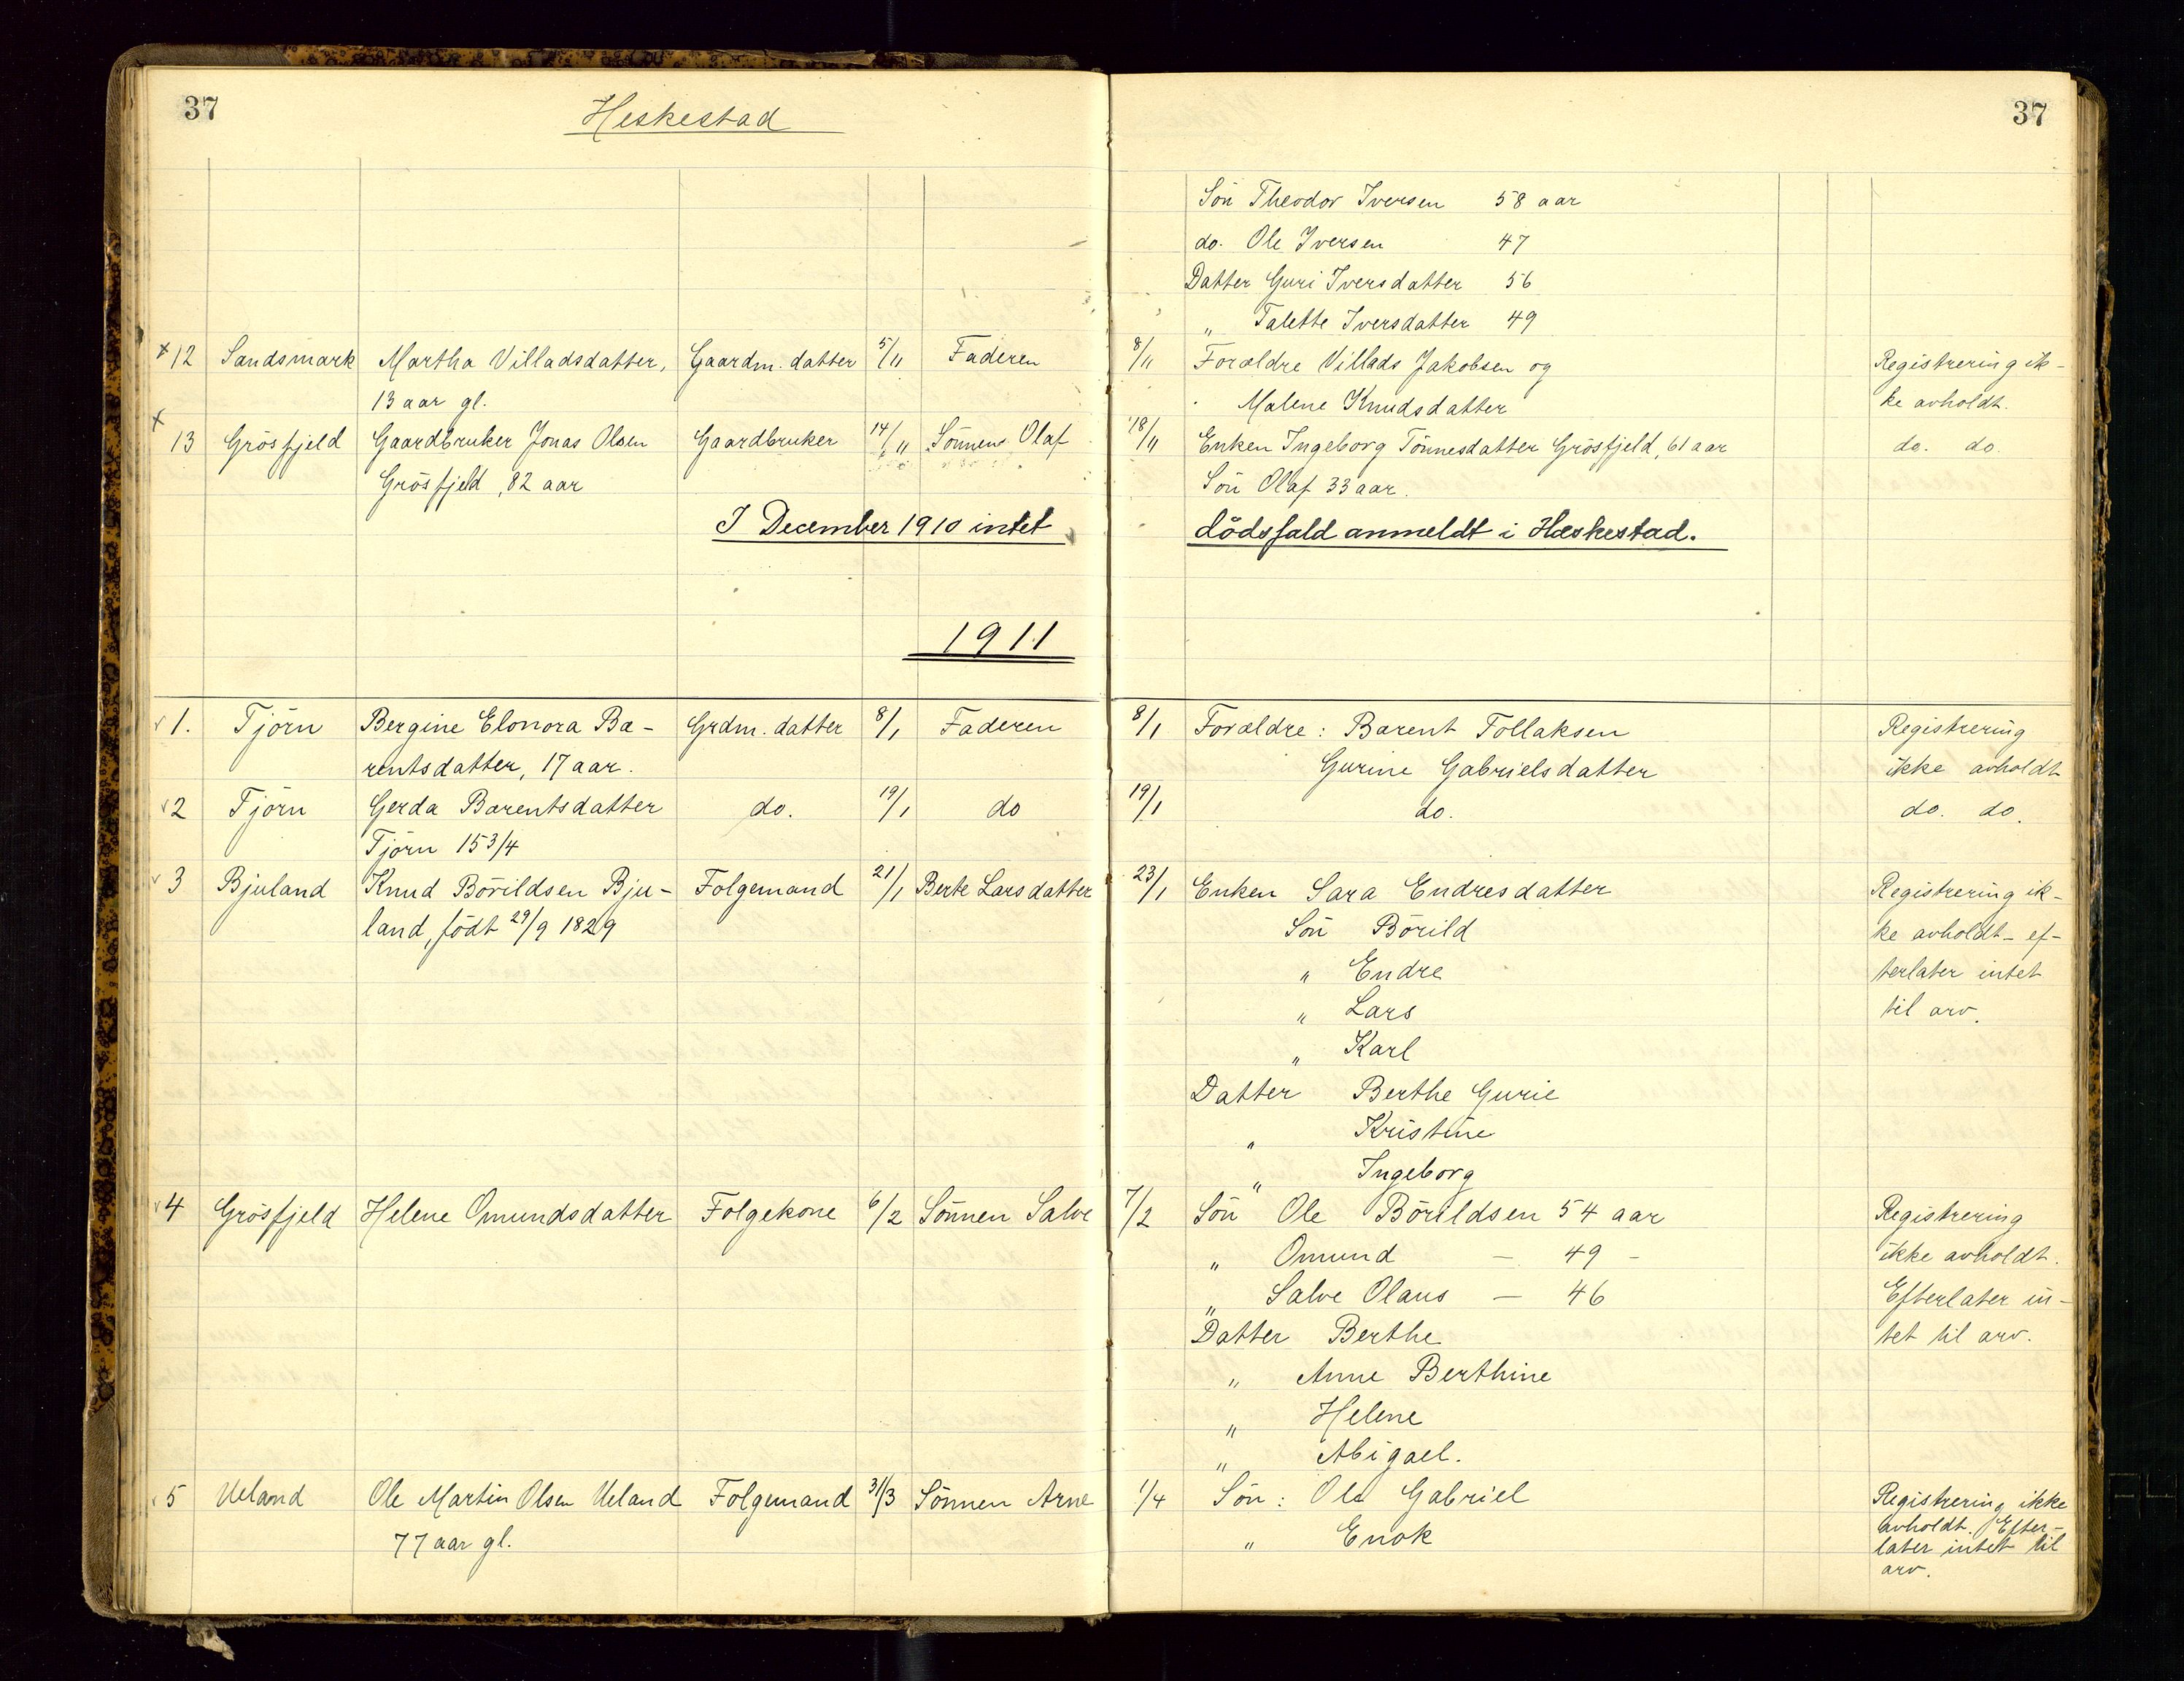 37
Heskestad
37
Sön Theodor Iversen 58 aar
do. Ole Iversen 47
Datter Guri Iversdatter 56
„ Talette Iversdatter 49
x 12 Sandsmark Martha Villadsdatter, Gaardm. datter 5/11 Faderen 8/11 Forældre Villads Jakobsen og Registrering ik-
13 aar gl. Malene Knudsdatter ke avholdt.
x 13 Grösfjeld Gaardbruker Jonas Olsen Gaardbruker 14/11 Sönnen Olaf 18/11 Enken Ingeborg Tönnesdatter Grösfjeld, 61 aar do. do.
Grösfjeld, 82 aar Sön Olaf 33 aar.
I December 1910 intet dödsfald anmeldt i Heskestad.
1911
v 1. Tjörn Bergine Elonora Ba- Grdm. datter 8/1 Faderen 8/1 Forældre: Barent Tollaksen Registrering
rentsdatter, 17 aar. Gurine Gabrielsdatter ikke avholdt
v 2 Tjörn Gerda Barentsdatter do. 19/1 do 19/1 do. do. do.
Tjörn 15 3/4
v 3 Bjuland Knud Börildsen Bju- Folgemand 21/1 Berte Larsdatter 23/1 Enken Sara Endresdatter Registrering ik-
land, födt 29/9 1829 Sön Börild ke avholdt – ef-
„ Endre terlater intet
„ Lars til arv.
„ Karl
Datter Berthe Gurie
„ Kristine
„ Ingeborg
v 4 Grösfjeld Helene Omundsdatter Folgekone 6/2 Sönnen Salve 7/2 Sön Ole Börildsen 54 aar Registrering
„ Omund — 49 – ikke avholdt.
„ Salve Olaus — 46 Efterlater in-
Datter Berthe tet til arv.
„ Anne Berthine
„ Helene
„ Abigael.
v 5 Ueland Ole Martin Olsen Ueland Folgemand 31/3 Sönnen Arne 1/4 Sön: Ole Gabriel Registrering ikke
77 aar gl. „ Enok avholdt. Efter-
later intet til
arv.